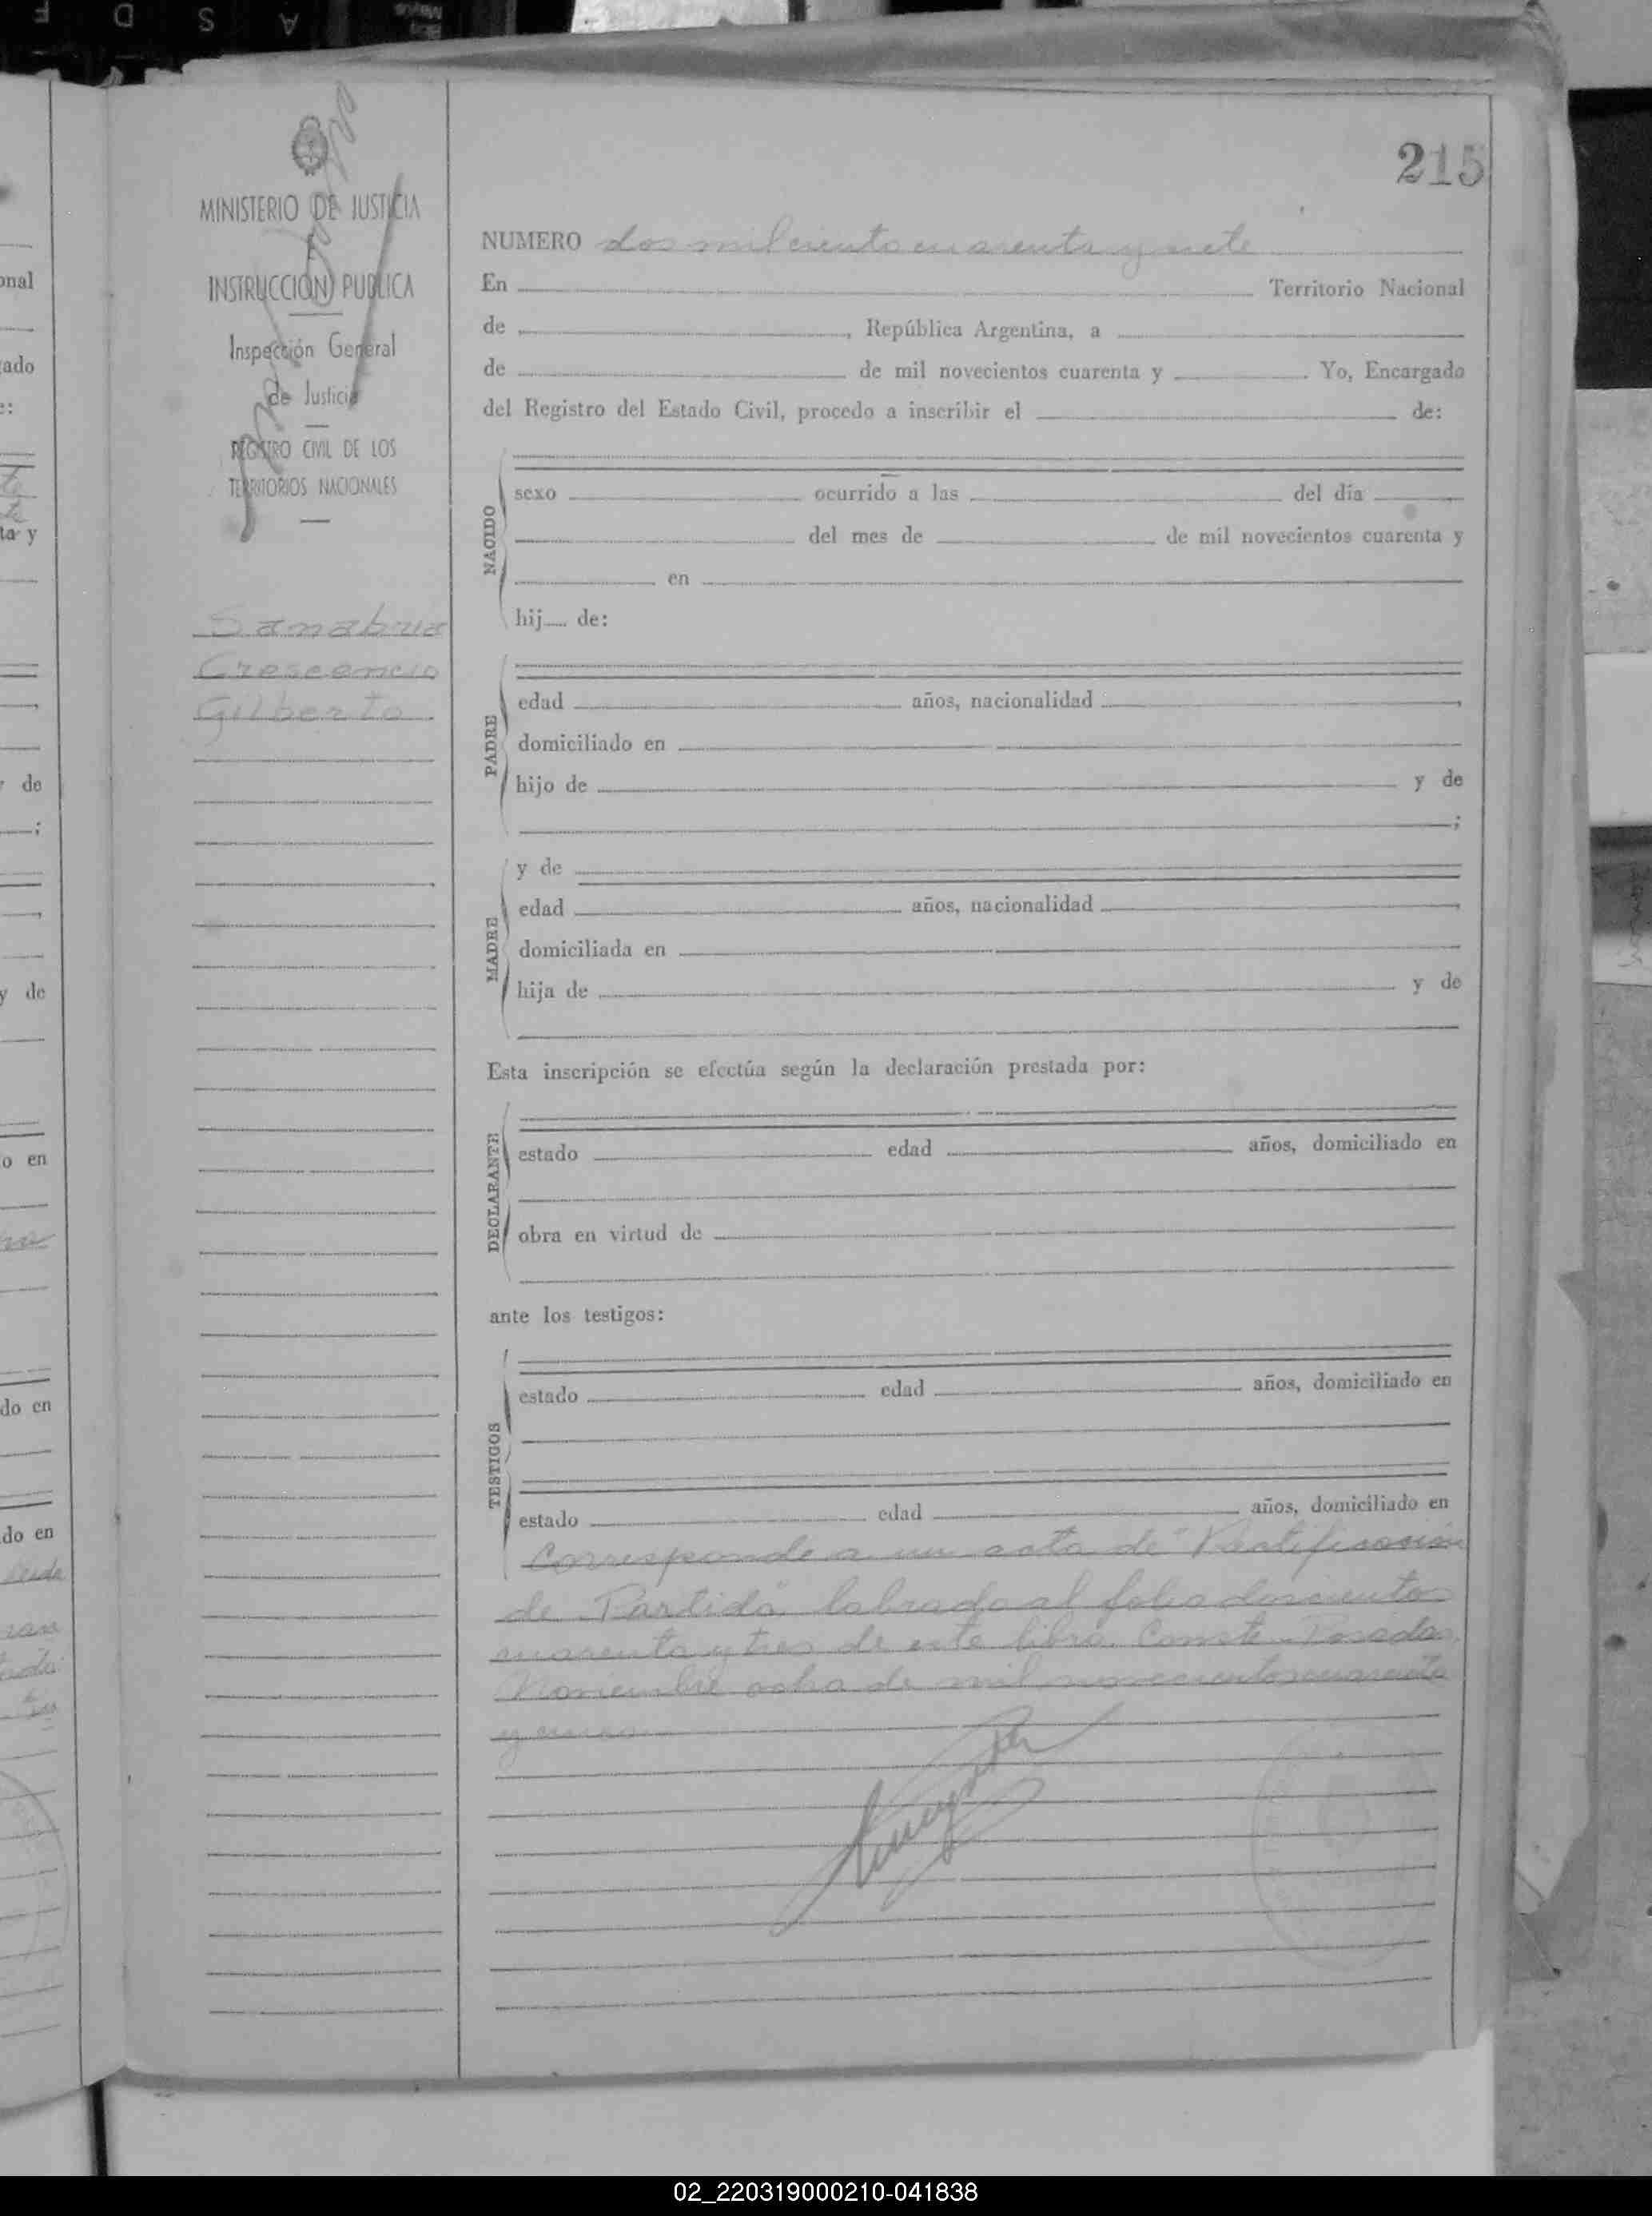 215
MINISTERIO DE JUSTICIA
E
INSTRUCCION PUBLICA
Inspección General
de Justicia
REGISTRO CIVIL DE LOS
TERRITORIOS NACIONALES
Sanabria
Crescencio
Gilberto
NUMERO dos mil ciento cuarenta y siete
En Territorio Nacional
de , República Argentina, a
de de mil novecientos cuarenta y . Yo, Encargado
del Registro del Estado Civil, procedo a inscribir el de:
NACIDO
sexo ocurrido a las del día
del mes de de mil novecientos cuarenta y
en
hij de:
PADRE
edad años, nacionalidad ,
domiciliado en
hijo de y de
;
MADRE
y de
edad años, nacionalidad ,
domiciliada en
hija de y de
Esta inscripción se efectúa según la declaración prestada por:
DECLARANTE
estado edad años, domiciliado en
obra en virtud de
ante los testigos:
TESTIGOS
estado edad años, domiciliado en
estado edad años, domiciliado en
Corresponde a un acta de "Rectificación
de Partida" labrado al folio doscientos
cuarenta y tres de este libro. Conste. Posadas
Noviembre ocho de mil novecientos cuarenta
y
onal
ado
ta y
y de
y de
o en
do en
do en
02_220319000210-041838